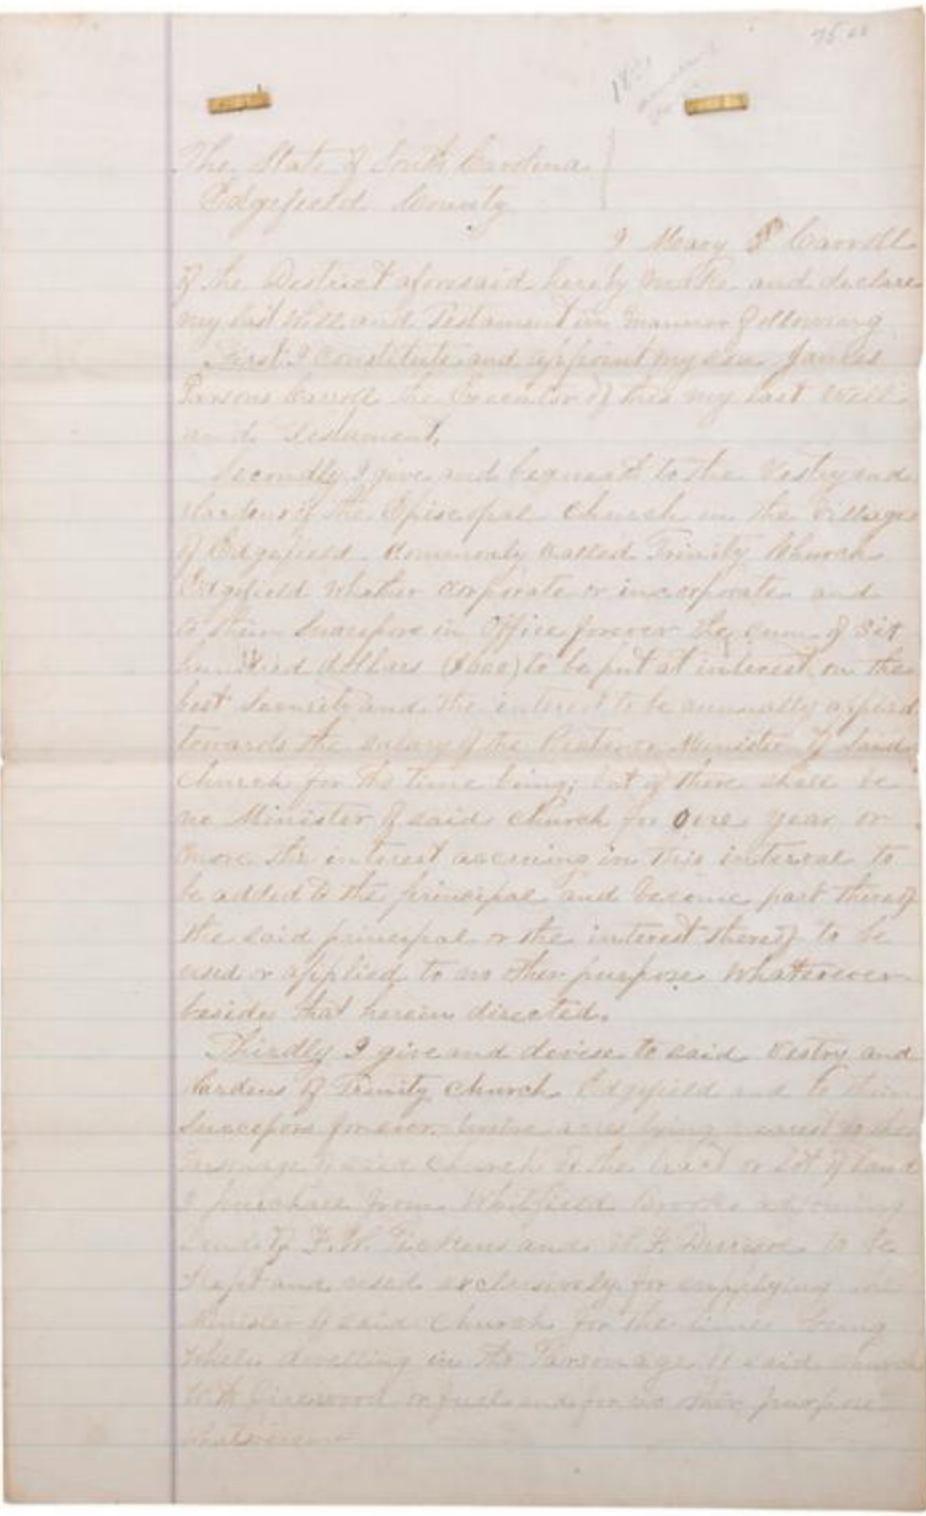 The State of South Carolina
Edgefield County
I Mary P Carroll
of the District aforesaid hereby make and declare
my last Will and Testament in manner following
First I constitute and appoint my son James
Parsons Carroll the Executor of this my last Will
and Testament.
Secondly I give and bequeath to the Vestry and
Wardens of the Episcopal Church in the Village
of Edgefield commonly called Trinity Church
Edgefield whether corporate or incorporate and
to their Successors in Office forever the sum of Six
hundred dollars ($600) to be put at interest on the
best Security and the interest to be annually applied
towards the salary of the Rector or Minister of said
Church for the time being; but if there shall be
no Minister of said Church for One year or
more the interest accruing in this interval to
be added to the principal and become part thereof
the said principal or the interest thereof to be
used or applied to no other purpose whatsoever
besides that herein directed.
Thirdly I give and devise to said Vestry and
Wardens of Trinity Church Edgefield and to their
Successors forever twelve acres being nearest to the
Parsonage of said Church of the tract or lot of land
I purchased from Whitfield Brooks adjoining
Lands of F. W. Pickens and W. F. Durisoe to be
Kept and used exclusively for supplying the
Minister of said Church for the time being
when dwelling in the Parsonage of said Church
With firewood or fuel and for no other purpose
whatsoever